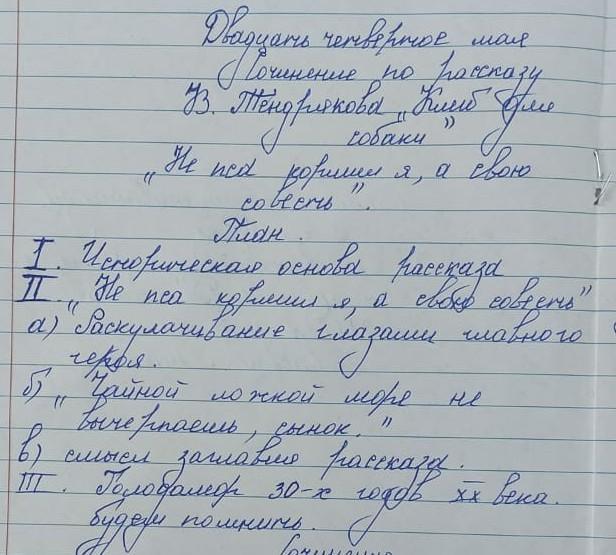 Двадцать четвертое мая
Сочинение по рассказу
В. Тендрякова „Хлеб для
собаки"
„Не пса кормил я, а свою
совесть".
План.
I. Историческая основа рассказа
II. „Не пса кормил я, а свою совесть"
а) Раскулачивание глазами главного
героя.
б) „Чайной ложкой море не
вычерпаешь, сынок."
в) смысл заглавия рассказа.
III. Голодомор 30-х годов XX века.
будем помнить.
Сочинение